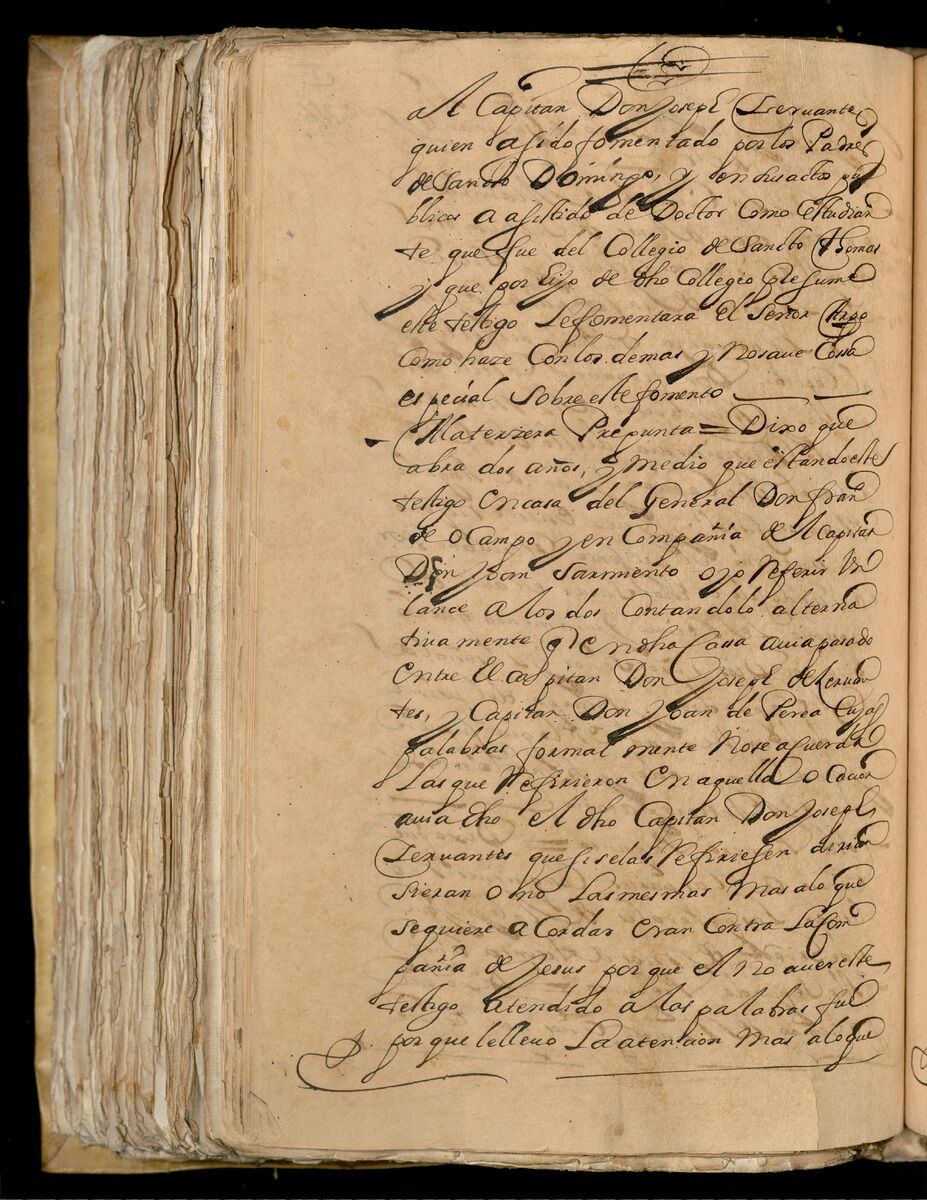 al Capitan Don Joseph Cervantes
quien a sido fomentado por los Padres
de Sancto Domingo, y en sus actos pu
blicos a asistido de Doctor Como estudian
te que fue del Collegio de Sancto Thomas
y que por hijo de dho Collegio Presume
este testigo le fomentara El Señor Arpo
Como haze Con los demas y No saue Cossa
especial Sobre este fomento
A la terzera Pregunta = Dixo que
abra dos años, y medio que estando este
testigo en casa del General Don fran
de o Campo y en Compañia del Capitan
Don Joan Sarmiento oyo Referir Un
lance a los dos Contandolo alterna
tivamente q en dha Cassa avia pasado
entre El capitan Don Joseph de Cervan
tes, y Capitan Don Joan de Perea Cuyas
palabras formalmente No se acuerda
Las que Refirieron en aquella o Cacion
avia dho el dho Capitan Don Joseph
Cervantes que si se las Refiriesen diria
sieran o no Las mesmas Mas a lo que
se quiere a Cordar eran Contra La Com
pañia de Jesus por que el No aver este
testigo atendido a las palabras fue
por que le lleuo La atencion Mas a lo que